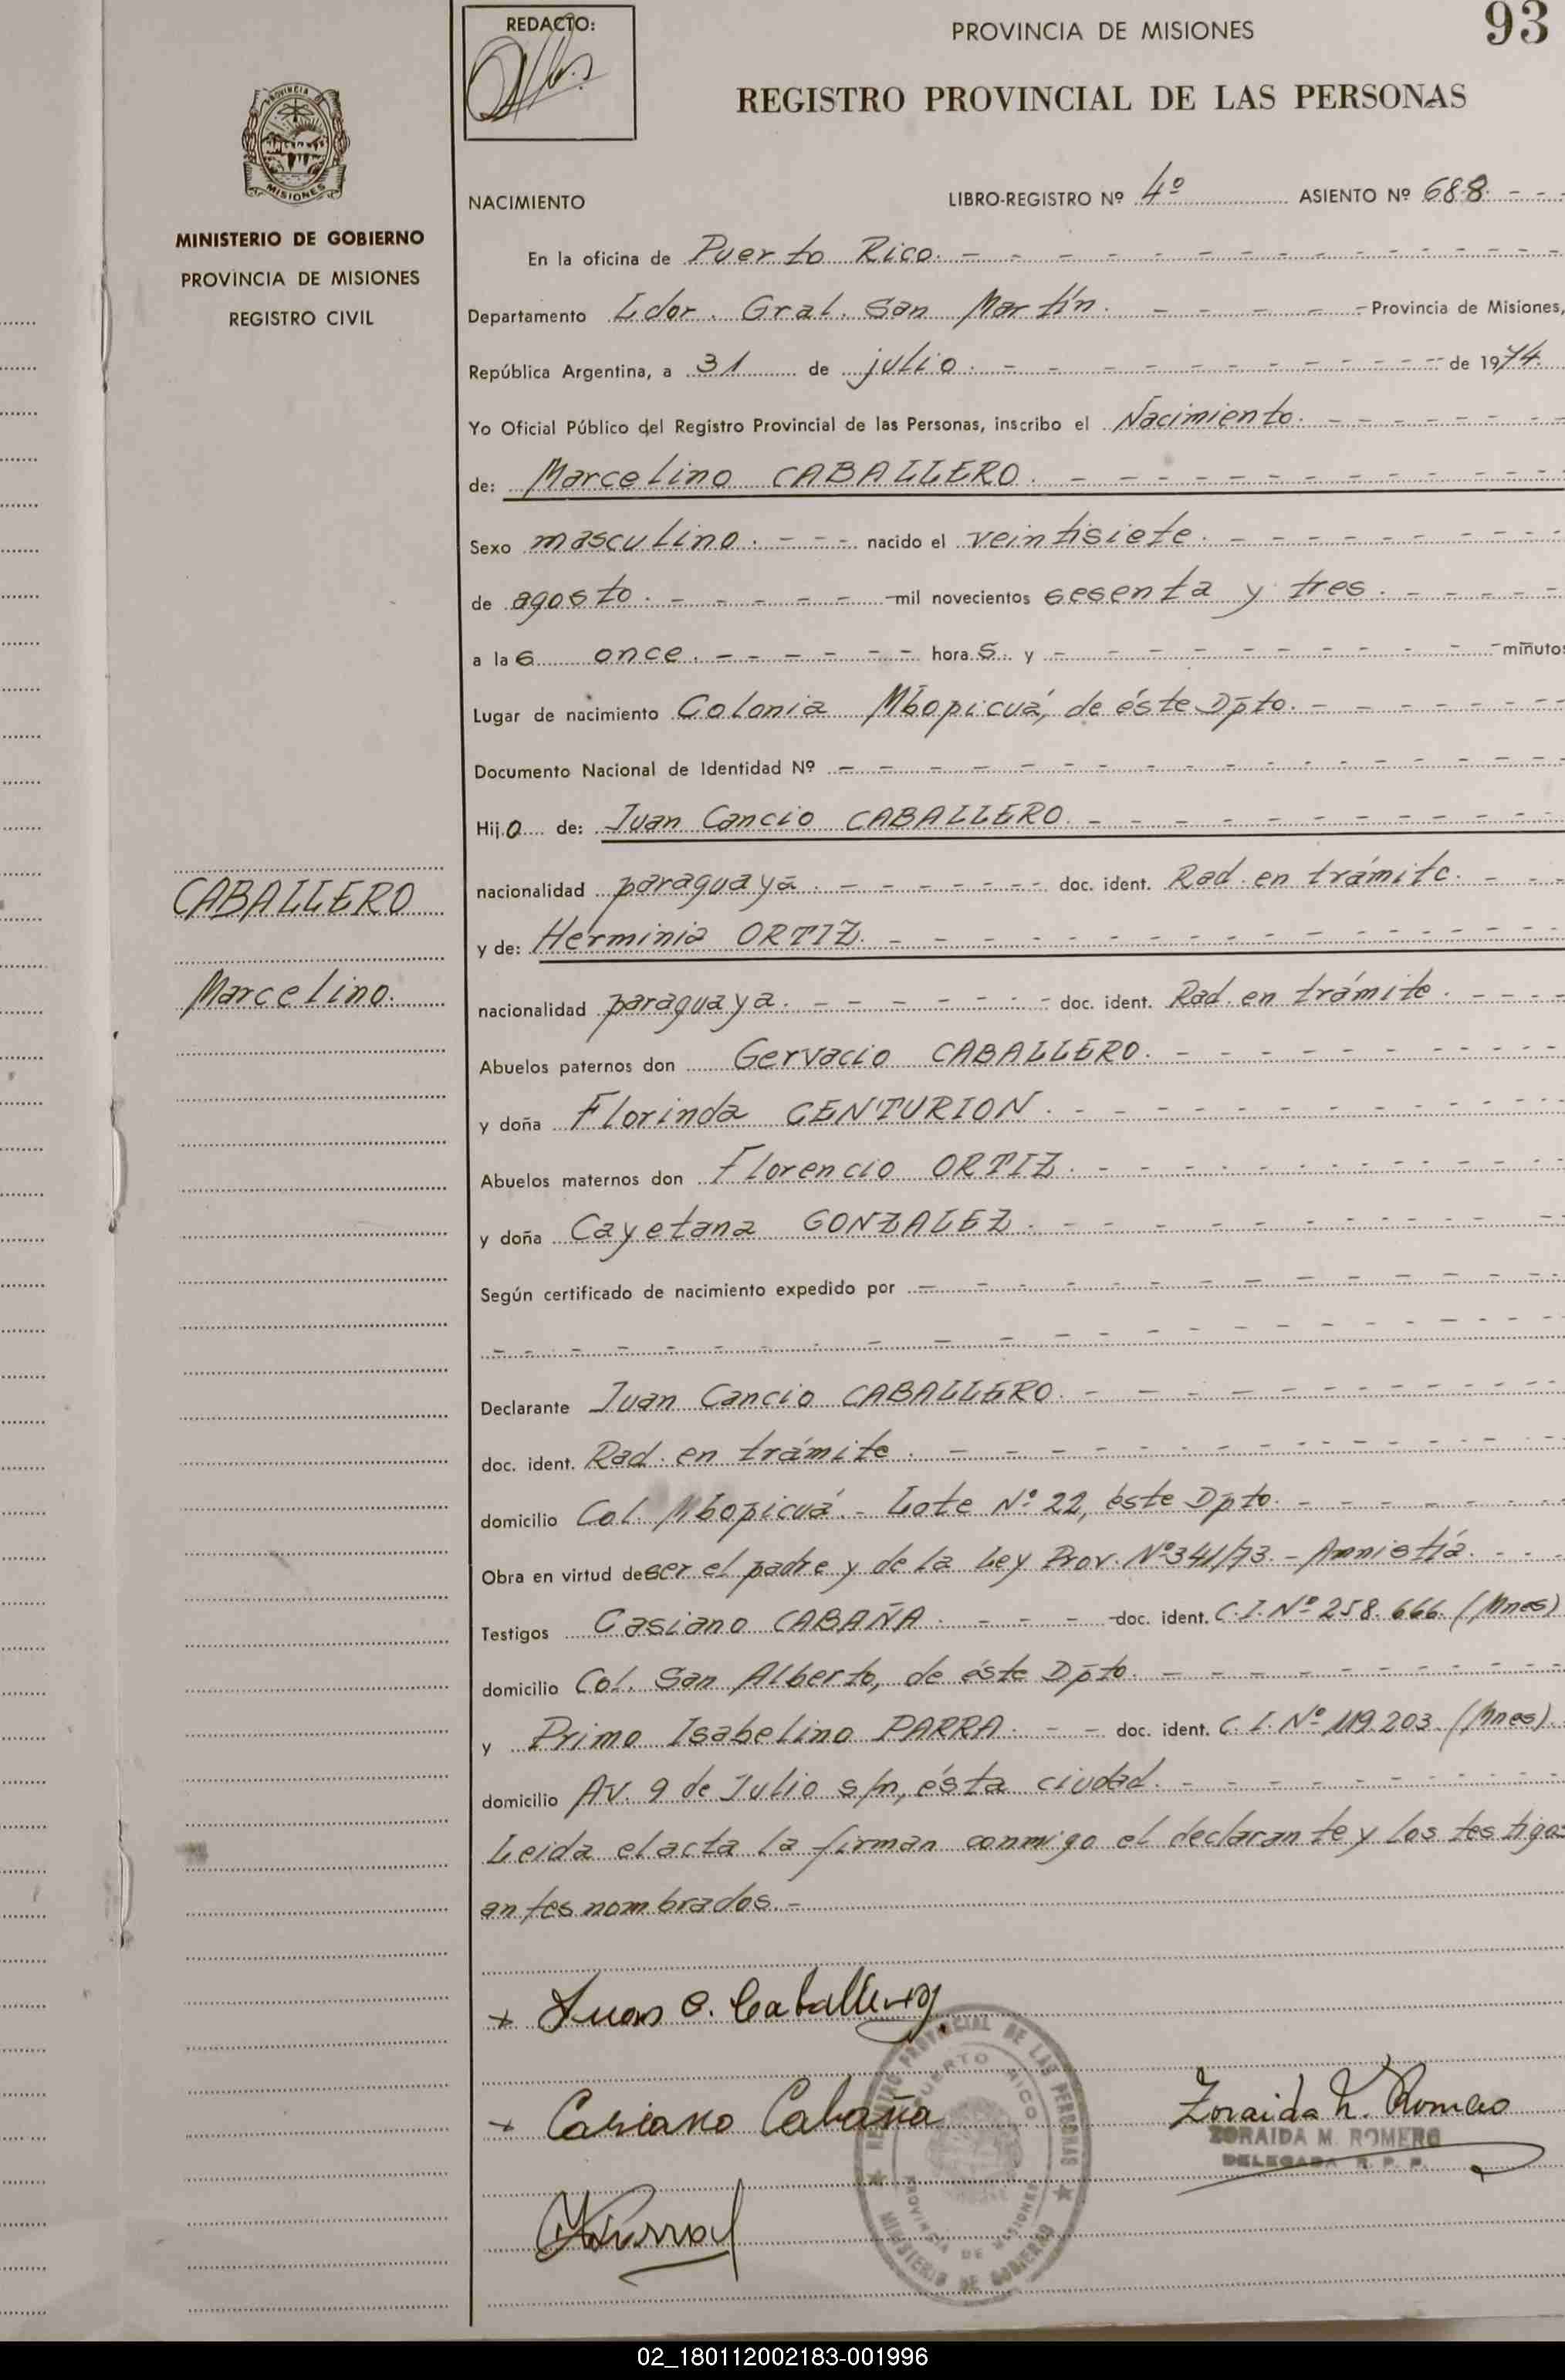 REDACTO:
PROVINCIA DE MISIONES
93
REGISTRO PROVINCIAL DE LAS PERSONAS
PROVINCIA DE
MISIONES
MINISTERIO DE GOBIERNO
PROVINCIA DE MISIONES
REGISTRO CIVIL
NACIMIENTO LIBRO-REGISTRO Nº 4º ASIENTO Nº 688
En la oficina de Puerto Rico.
Departamento Ldor. Gral. San Martín. Provincia de Misiones,
República Argentina, a 31 de julio. de 1974.
Yo Oficial Público del Registro Provincial de las Personas, inscribo el Nacimiento.
de: Marcelino CABALLERO.
Sexo masculino. nacido el veintisiete.
de agosto. mil novecientos sesenta y tres.
a las once. horas. y minuto
Lugar de nacimiento Colonia Mbopicuá, de éste Dpto.
Documento Nacional de Identidad Nº
Hijo de: Juan Cancio CABALLERO.
CABALLERO
nacionalidad paraguaya. doc. ident. Rad. en trámite.
y de: Herminia ORTIZ.
Marcelino.
nacionalidad paraguaya. doc. ident. Rad. en trámite.
Abuelos paternos don Gervacio CABALLERO.
y doña Florinda CENTURION.
Abuelos maternos don Florencio ORTIZ.
y doña Cayetana GONZALEZ.
Según certificado de nacimiento expedido por
Declarante Juan Cancio CABALLERO.
doc. ident. Rad. en trámite.
domicilio Col. Mbopicuá. - Lote Nº 22, éste Dpto.
Obra en virtud de ser el padre y de la Ley Prov. Nº 341/73. - Amnistía.
Testigos Casiano CABAÑA. doc. ident. C.I. Nº 258.666. (Mnes)
domicilio Col. San Alberto, de éste Dpto.
y Primo Isabelino PARRA. doc. ident. C.I. Nº 119.203. (Mnes).
domicilio Av. 9 de Julio s/n, ésta ciudad.
Leida el acta la firman conmigo el declarante y los testigos
antes nombrados. -
+ Juan C. Caballero
+ Casiano Cabaña
Zoraida M. Romero
ZORAIDA M. ROMERO
DELEGADA R. P. P.
REGISTRO PROVINCIAL DE LAS PERSONAS
PUERTO RICO
PROVINCIA DE MISIONES
MINISTERIO DE GOBIERNO
02_180112002183-001996